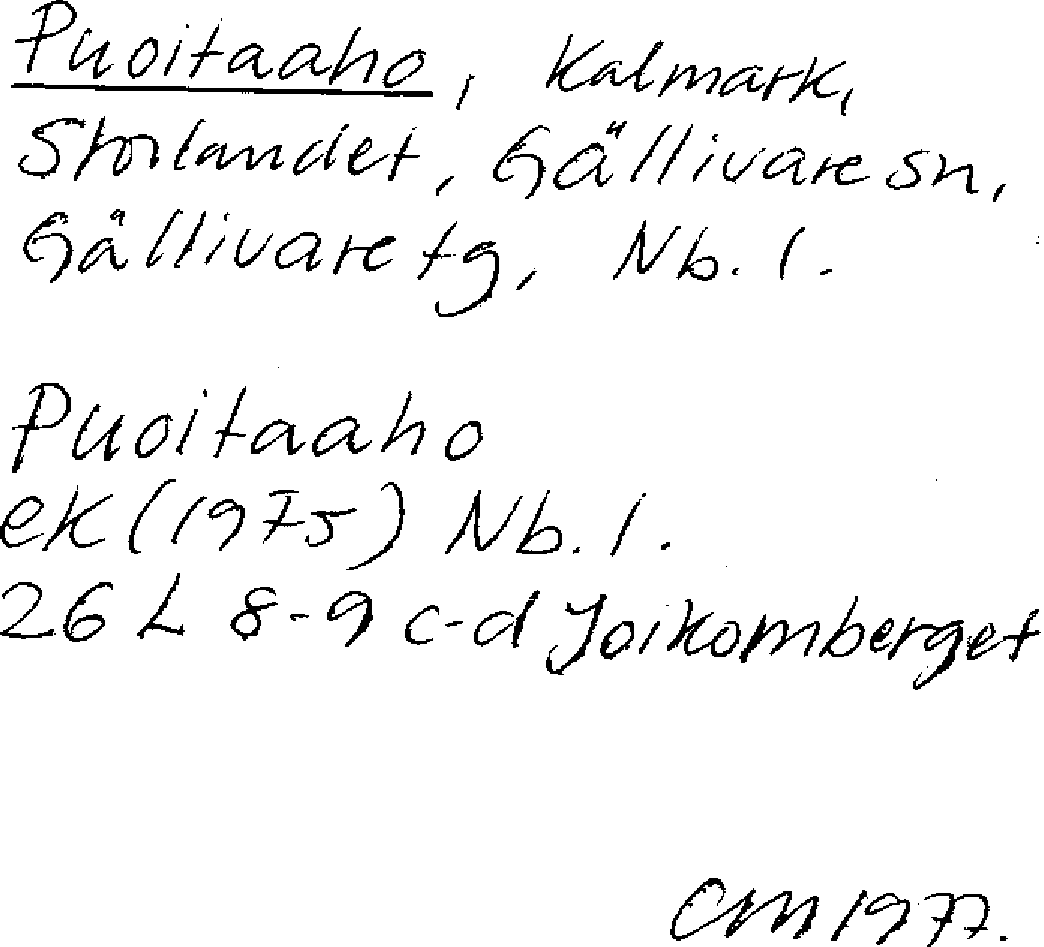 Puoitaaho, Kalmark,
Storlandet, Gällivare sn,
Gällivare tg, Nb. l.
Puoitaaho
ek (1975) Nb. l.
26 L 8-9 c-d Joikomberget
CM 1977.